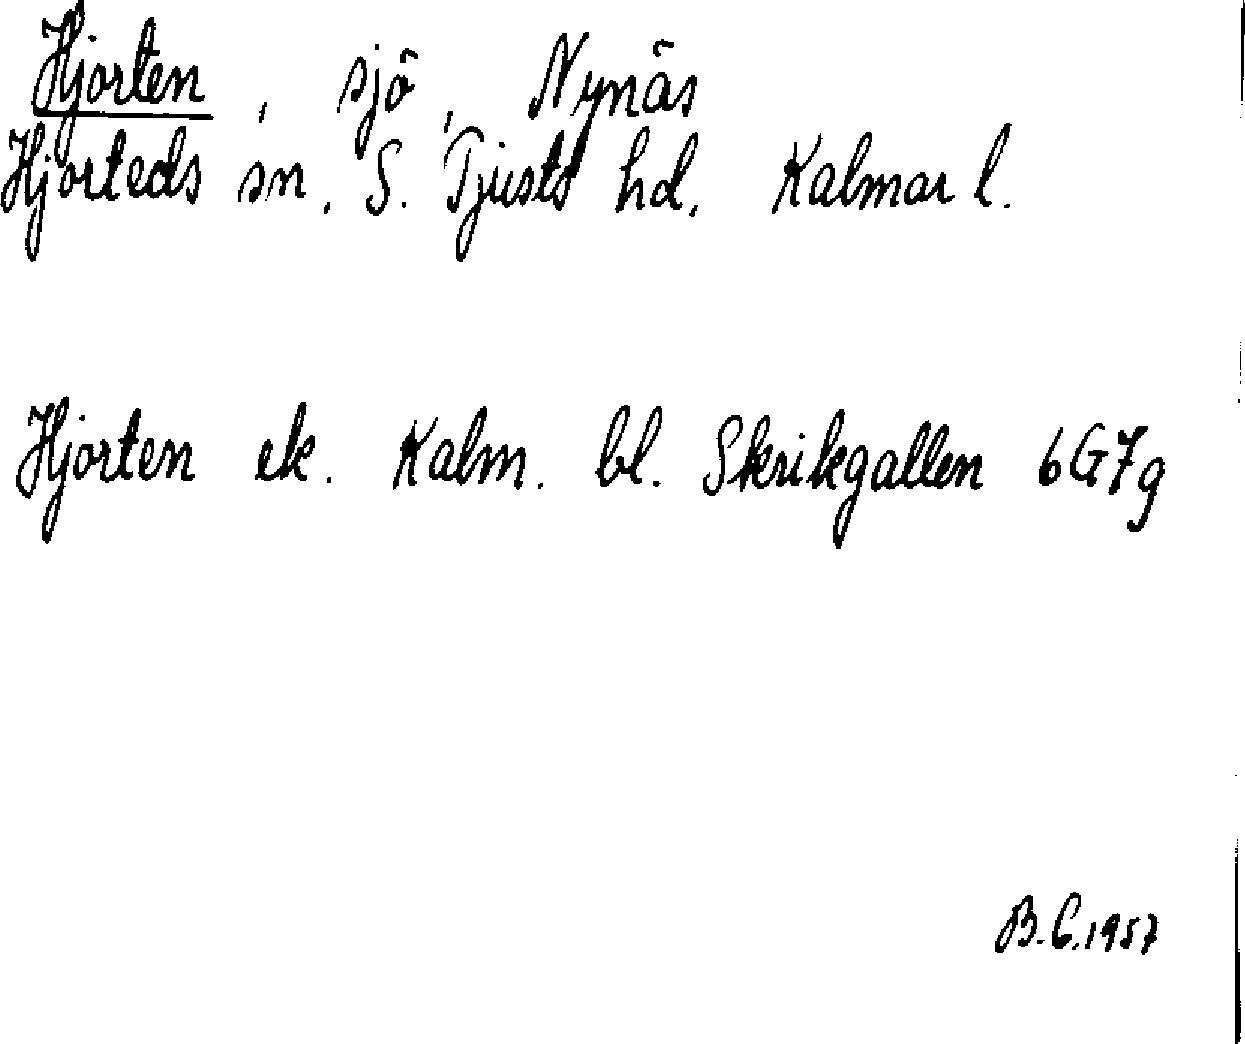 Hjorten, sjö, Nynäs
Hjorteds sn. S. Tjusts hd. Kalmar l.
Hjorten ek. Kalm. bl. Skrikgallen 6G7g
B.C. 1957